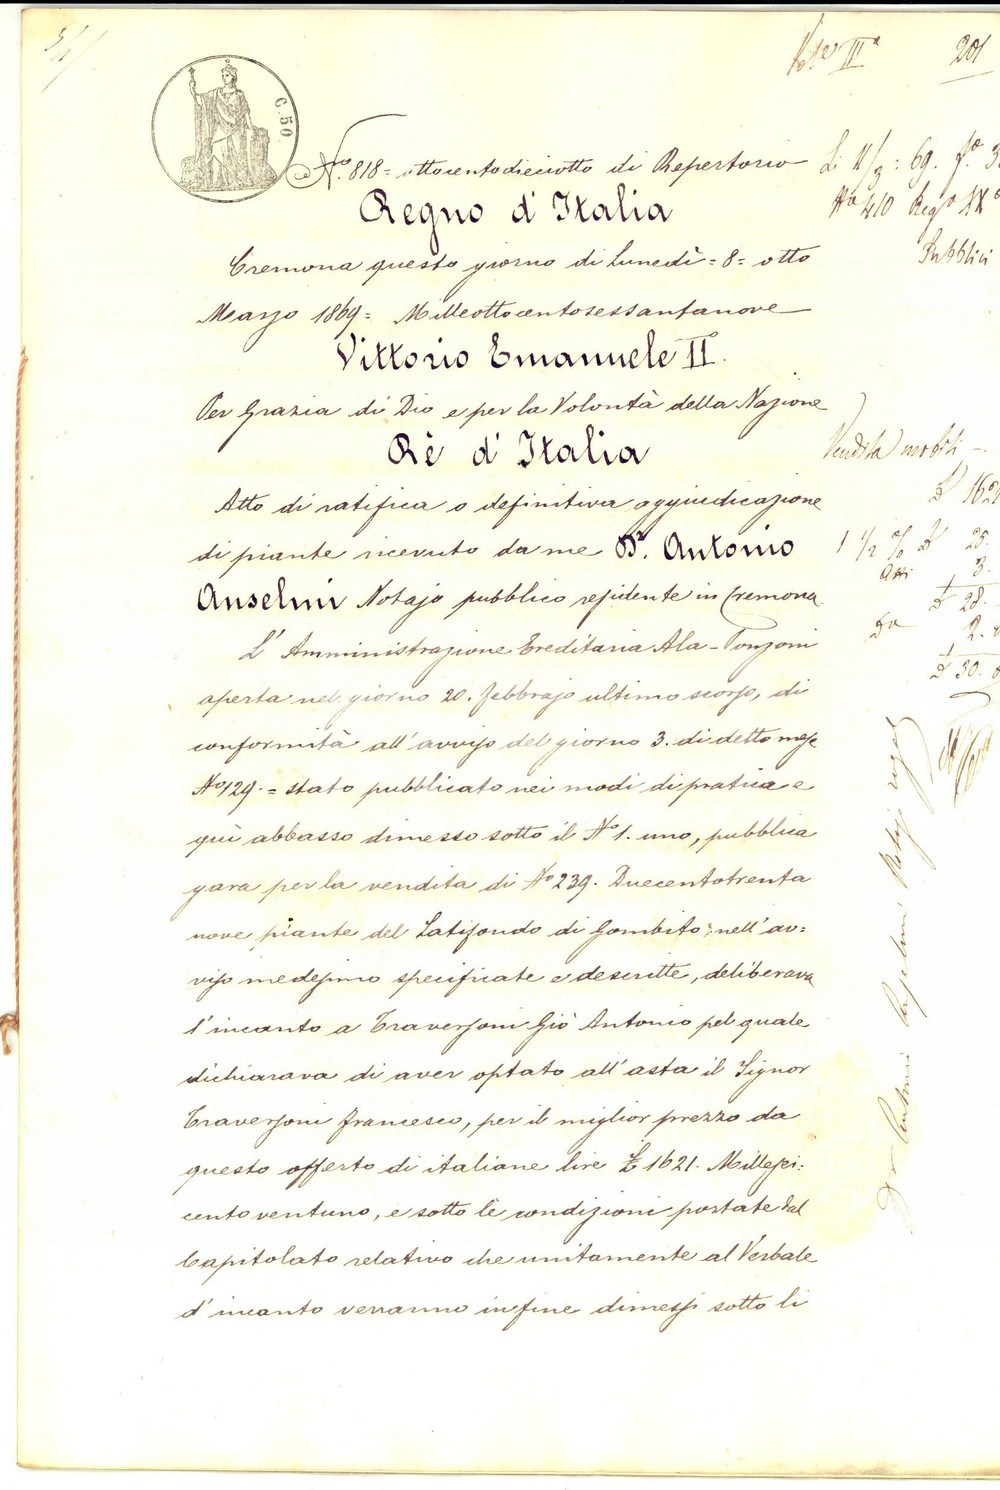 C. 50
201
N.º 818 = ottocentodieciotto di Repertorio
Regno d'Italia
Cremona questo giorno di Lunedì = 8 = otto
Marzo 1869 = Milleottocentosessantanove
Vittorio Emanuele II.
Per Grazia di Dio e per la Volontà della Nazione
Rè d'Italia
Atto di ratifica o definitiva aggiudicazione
di piante ricevuto da me Dr. Antonio
Anselmi Notajo pubblico residente in Cremona.
L'Amministrazione Ereditaria Ala-Ponzoni
aperta nel giorno 20. febbrajo ultimo scorso, di
conformità all'avviso del giorno 3. di detto mese
Nº 129. = stato pubblicato nei modi di pratica e
quì abbasso dimesso sotto il Nº 1. uno, pubblica
gara per la vendita di Nº 239. Duecentotrenta
nove piante del Latifondo di Gombito, nell'av=
viso medesimo specificate e descritte, deliberava
l'incanto a Traversoni Giò Antonio pel quale
dichiarava di aver optato all'asta il Signor
Traversoni Francesco, per il miglior prezzo da
questo offerto di italiane lire £ 1621. Millesei=
centoventuno, e sotto le condizioni portate dal
Capitolato relativo che unitamente al Verbale
d'incanto verranno in fine dimessi sotto li
Nº 410 Reg.º
Pubblici
Vendita mobili
1 1/2 % £ 25.
3.
£ 28.
2.
£ 30.
Dr Antonio Anselmi Notajo